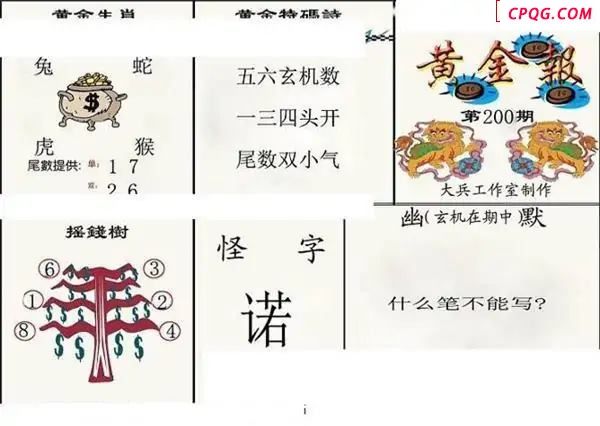 CPQG.COM
黄金生肖
兔 蛇
$
虎 猴
尾數提供: 单: 1 7
双: 2 6
黄金特碼詩
五六玄机数
一三四头开
尾数双小气
黄金報
第200期
大兵工作室制作
摇錢樹
⑥ ③
① ②
⑧ ④
$ $ $ $ $ $ $ $
怪字
诺
幽(玄机在期中)默
什么笔不能写?
i